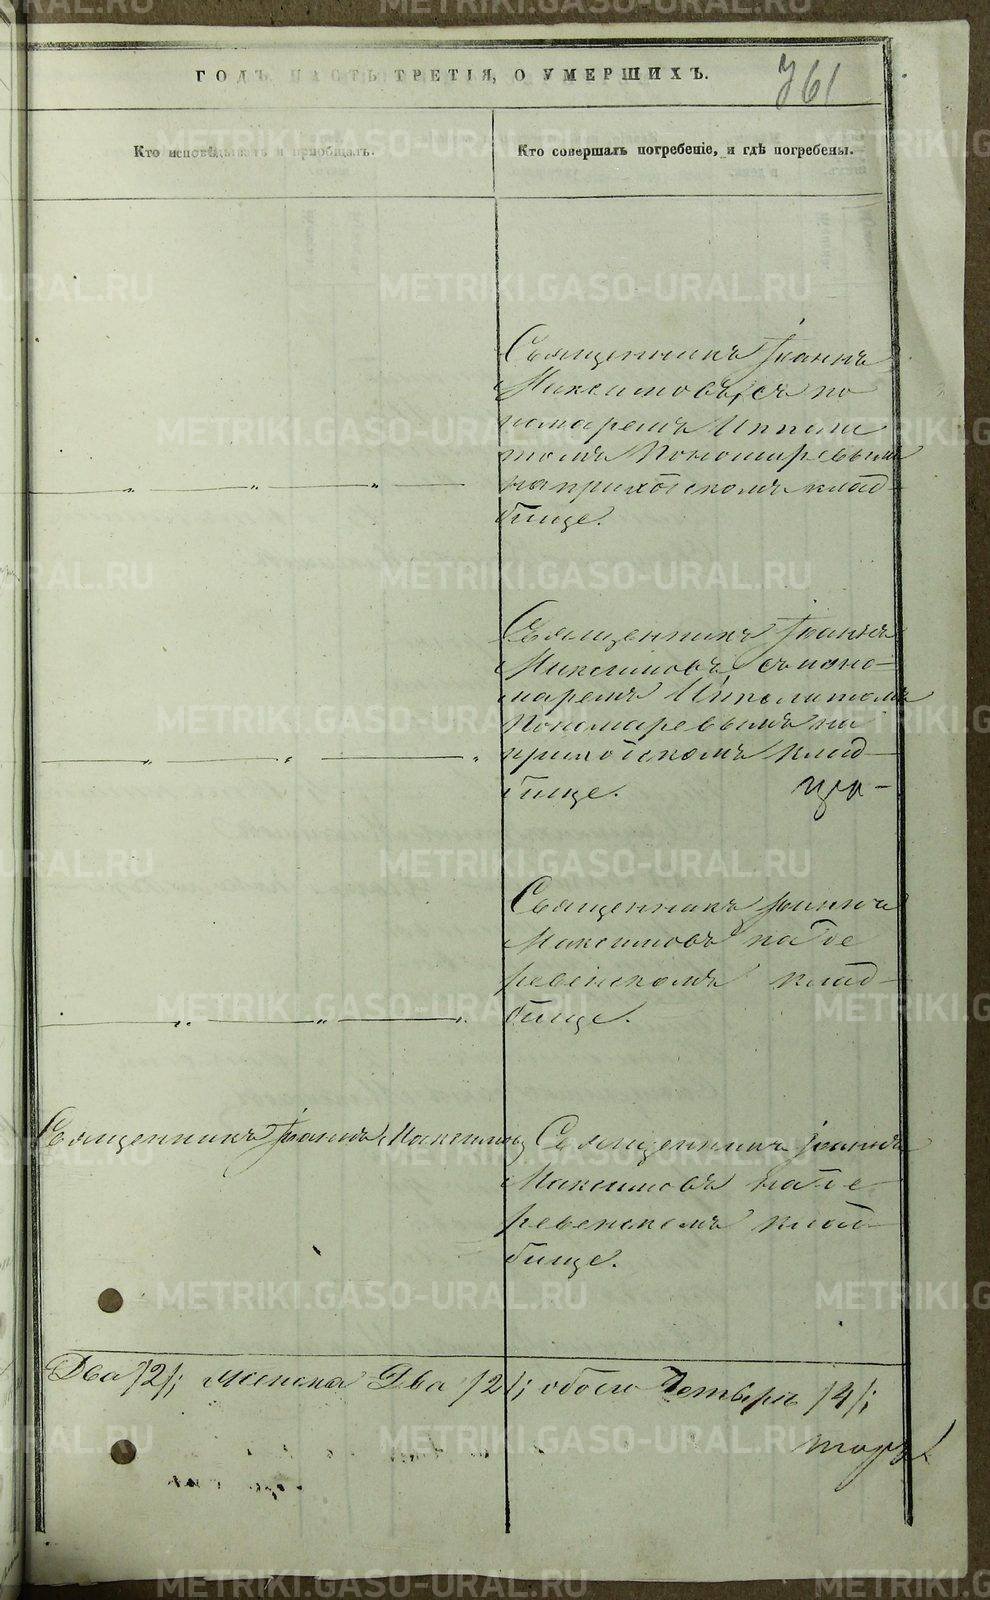 ГОДЪ ЧАСТЬ ТРЕТІЯ, О УМЕРШИХЪ.
761
Кто исповѣдывалъ и приобщалъ.
Кто совершалъ погребеніе, и гдѣ погребены.
Священникъ Іоаннъ
Максимовъ, съ по
номаремъ Иппали
томъ Пономаревымъ
на приходскомъ клад-
бище.
Священникъ Іоаннъ
Максимовъ, съ поно-
маремъ Иполитомъ
Пономаревымъ на
приходскомъ клад-
бище.
Священникъ Іоаннъ
Максимовъ на де
ревенскомъ клад-
бище.
Священникъ Іоаннъ Максимов
Священникъ Іоаннъ
Максимовъ на де-
ревенскомъ клад-
бище.
Два /2/; женска Два /2/; обоего Четыре /4/;
METRIKI.GASO-URAL.RU